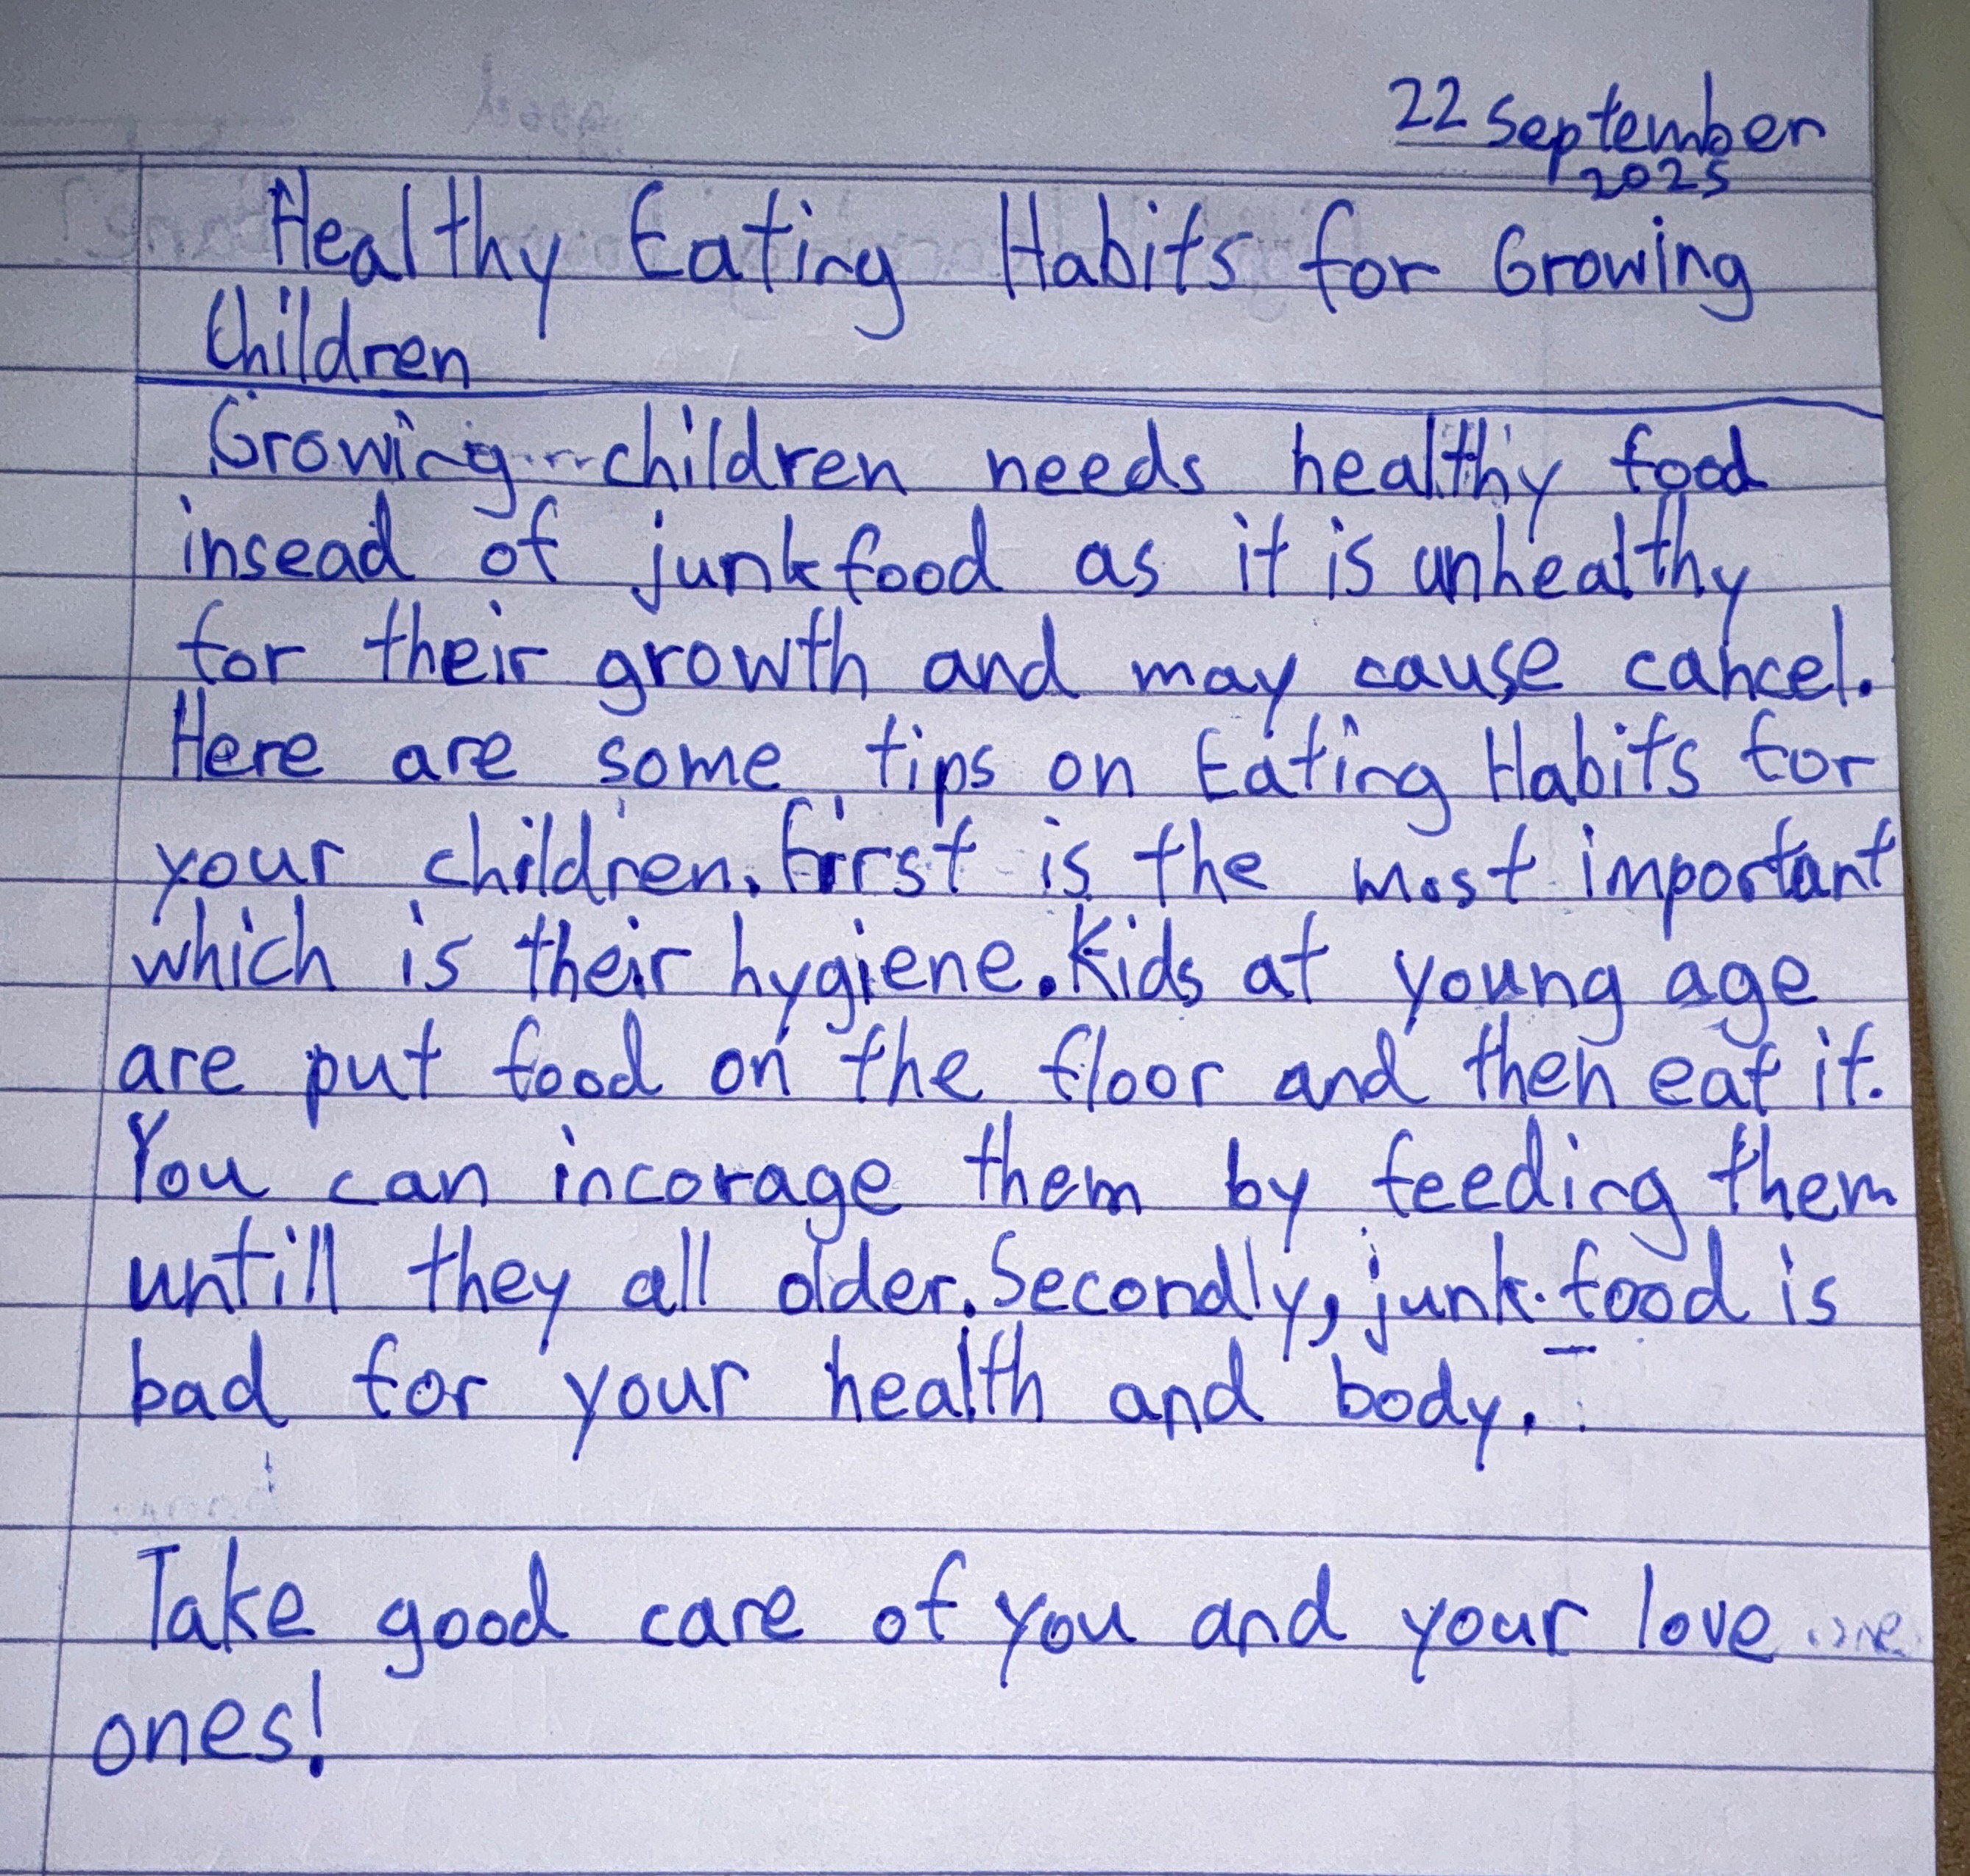 22 September
2025
Healthy Eating Habits for Growing
Children
Growing children needs healthy food
insead of junkfood as it is unhealthy
for their growth and may cause cancel.
Here are some tips on Eating Habits for
your children. First is the most important
which is their hygiene. Kids at young age
are put food on the floor and then eat it.
You can incorage them by feeding them
untill they all older. Secondly, junk food is
bad for your health and body.
Take good care of you and your love
ones!